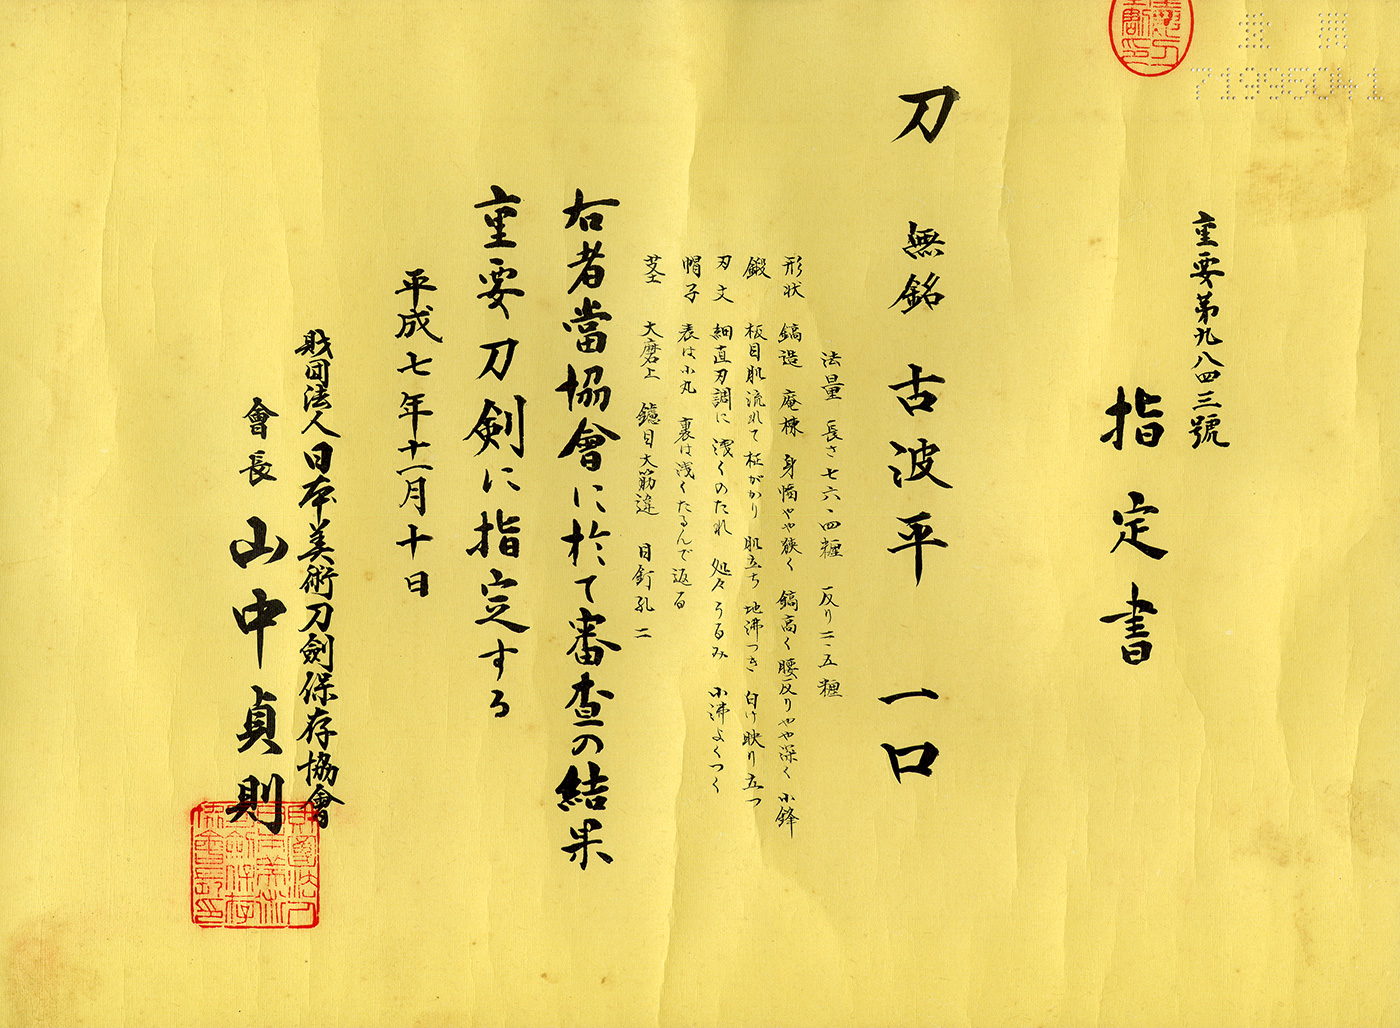 重要第九八四三號
指定書
刀 無銘 古波平 一口
法量 長さ七六・四糎 反り二・五糎
形状 鎬造 庵棟 身幅やや狭く 鎬高く 腰反りやや深く 小鋒
鍛 板目肌流れて柾がかり 肌立ち 地沸つき 白け映り立つ
刃文 細直刃調に 浅くのたれ 処々うるみ 小沸よくつく
帽子 表は小丸 裏は浅くたるんで返る
茎 大磨上 鑢目大筋違 目釘孔二
右者當協會に於て審査の結果
重要刀剣に指定する
平成七年十一月十日
財団法人日本美術刀劍保存協會
會長 山中貞則
71995041